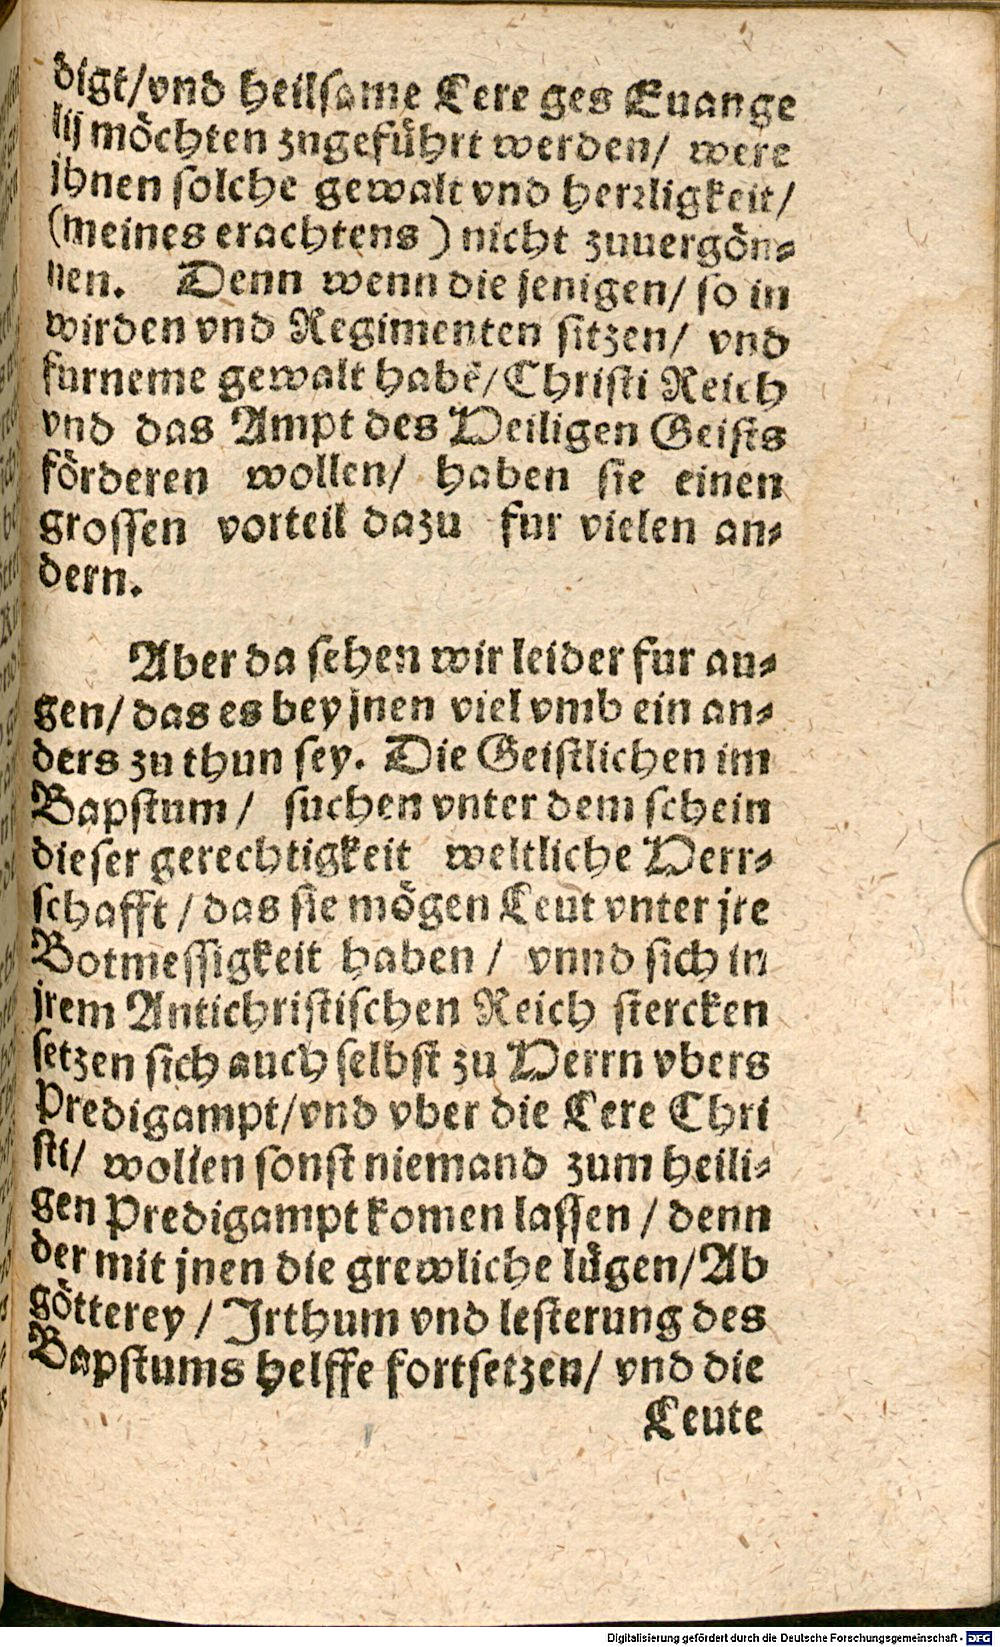 digt/vnd heilsame Lere ges Euange
lij möchten zngeführt werden/ were
jhnen solche gewalt vnd herrligkeit/
(meines erachtens) nicht zuuergön-
nen. Denn wenn die jenigen/ so in
wirden vnd Regimenten sitzen/ vnd
furneme gewalt habē/Christi Reich
vnd das Ampt des Heiligen Geists
förderen wollen/ haben sie einen
grossen vorteil dazu fur vielen an-
dern.
Aber da sehen wir leider fur au-
gen/ das es bey jnen viel vmb ein an-
ders zu thun sey. Die Geistlichen im
Bapstum/ suchen vnter dem schein
dieser gerechtigkeit weltliche Herr-
schafft/das sie mögen Leut vnter jre
Botmessigkeit haben/ vnnd sich in
jrem Antichristischen Reich stercken
setzen sich auch selbst zu Herrn vbers
Predigampt/vnd vber die Lere Chri
sti/ wollen sonst niemand zum heili-
gen Predigampt komen lassen/denn
der mit jnen die grewliche lügen/Ab
götterey/Irthum vnd lesterung des
Bapstums helffe fortsetzen/ vnd die
Leute
Digitalisierung gefördert durch die Deutsche Forschungsgemeinschaft - DFG